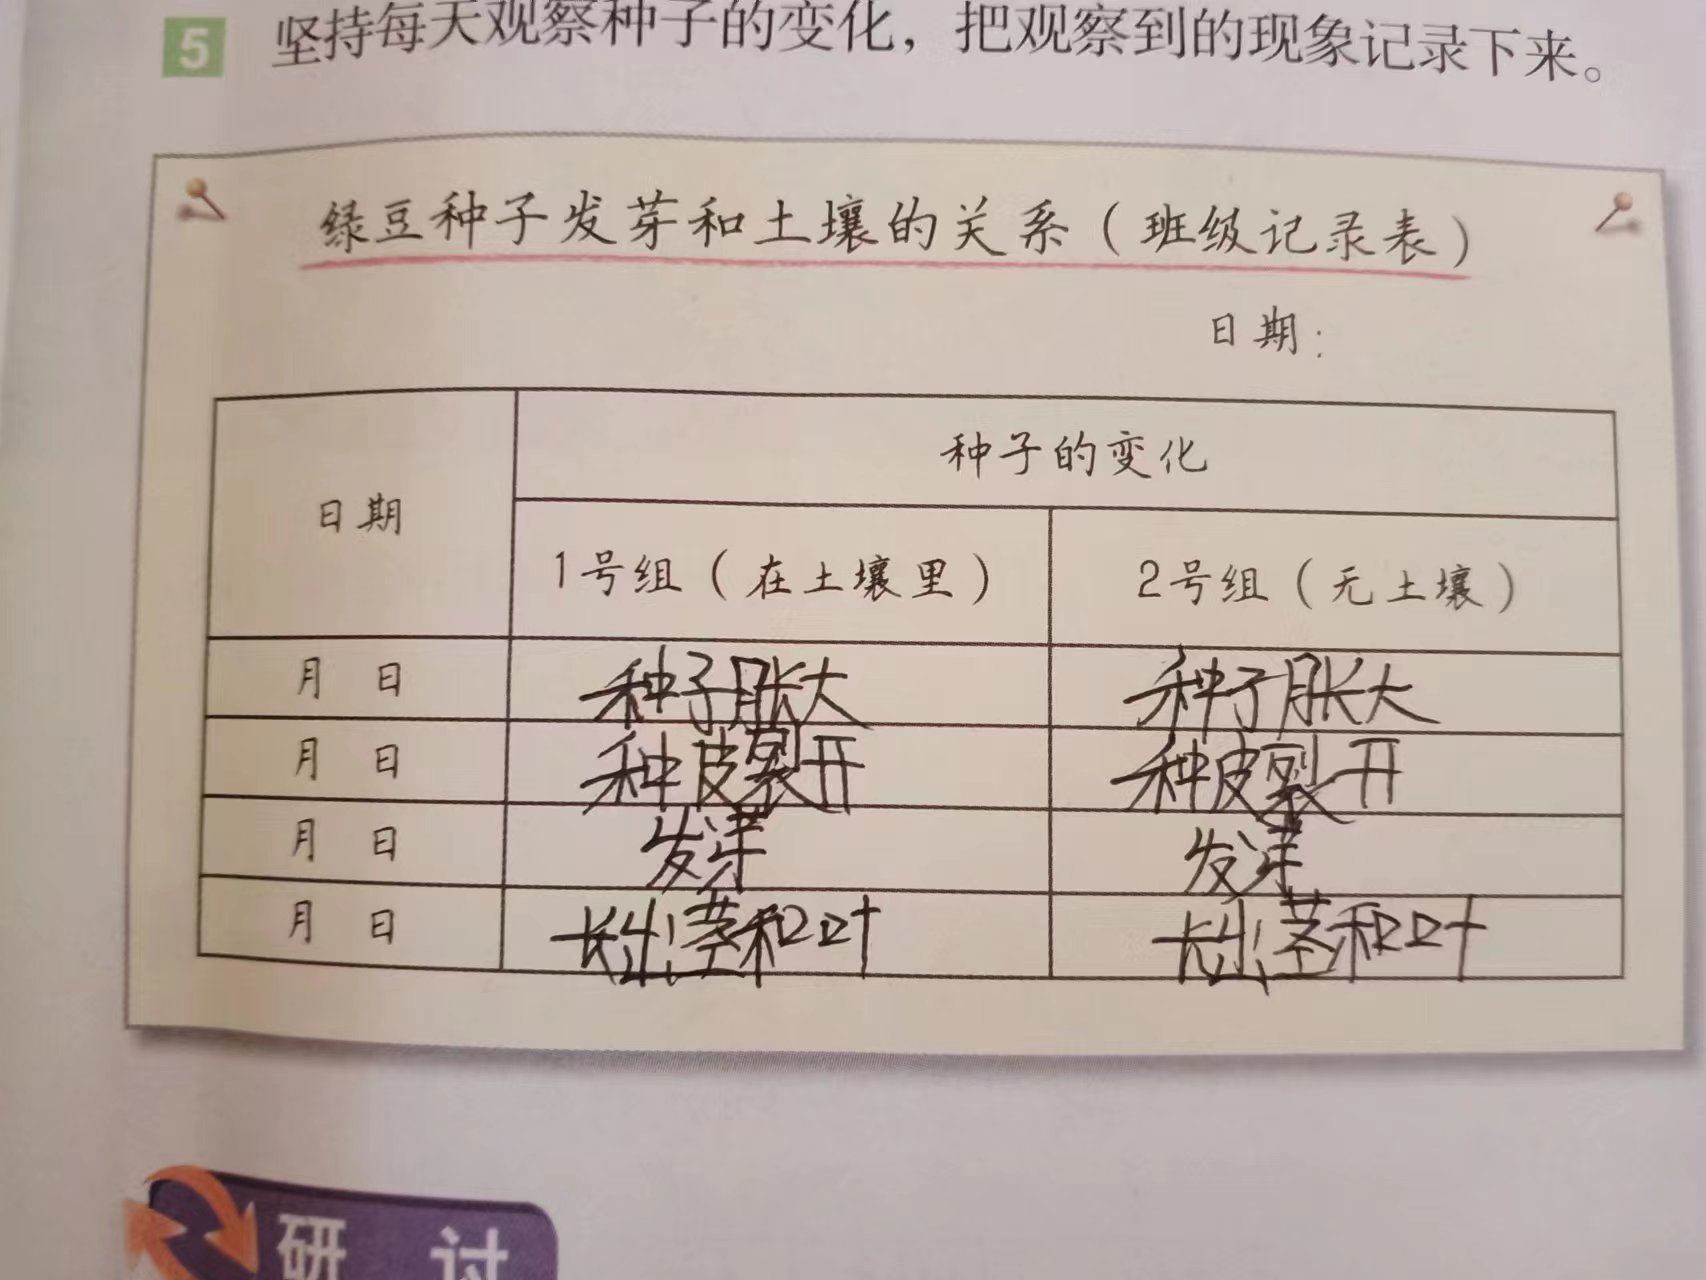 5 坚持每天观察种子的变化，把观察到的现象记录下来。
绿豆种子发芽和土壤的关系（班级记录表）
日期：
日期 种子的变化
1号组（在土壤里） 2号组（无土壤）
月 日 种子胀大 种子胀大
月 日 种皮裂开 种皮裂开
月 日 发芽 发芽
月 日 长出茎和叶 长出茎和叶
研讨